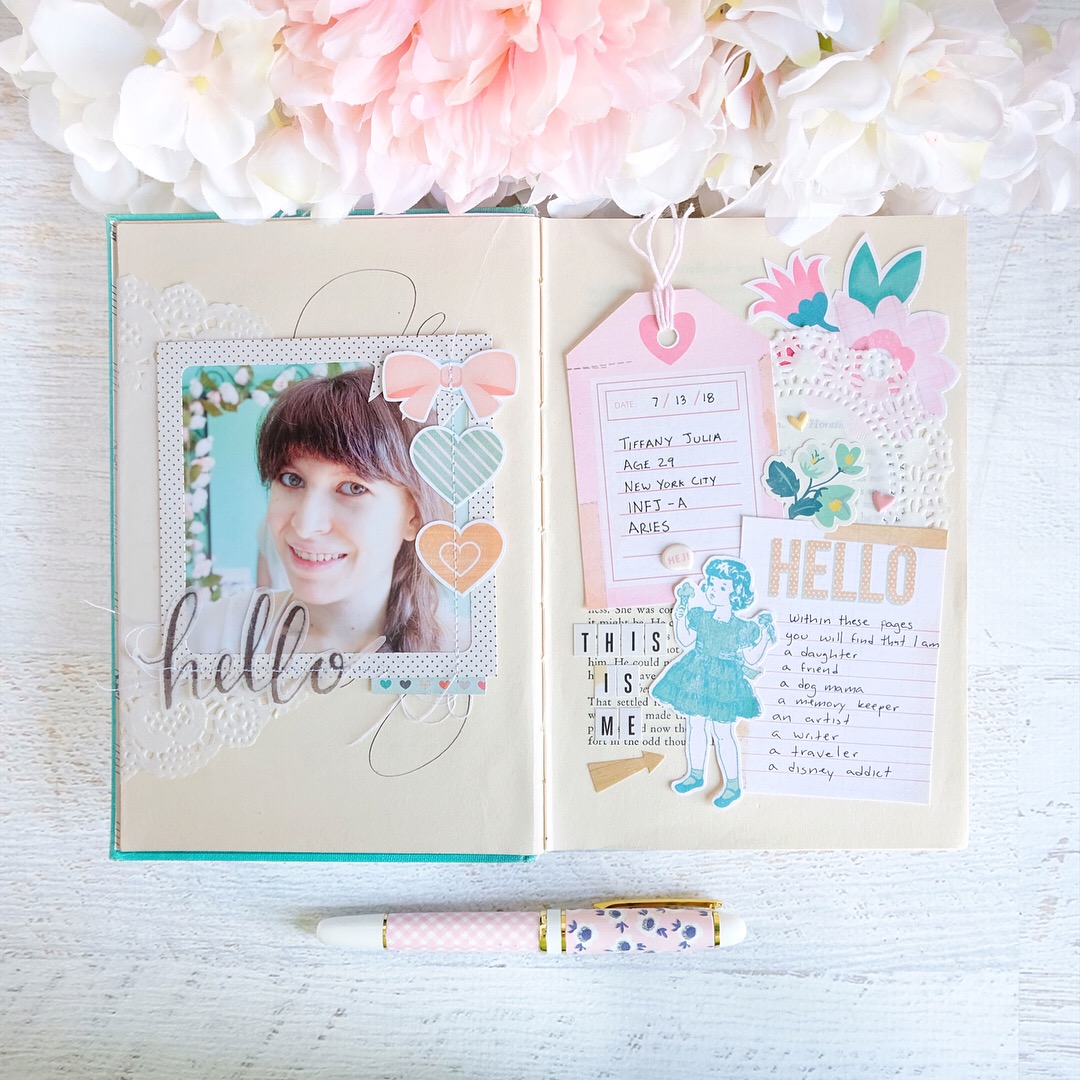 hello
DATE: 7/13/18
TIFFANY JULIA
AGE 29
NEW YORK CITY
INFJ-A
ARIES
HEJ!
HELLO
Within these pages
you will find that I am
a daughter
a friend
a dog mama
a memory keeper
an artist
a writer
a traveler
a disney addict
ness. She was
it might be. He
THIS
not
him. He could
IS
That settled
made
ME
now the
fort in the odd